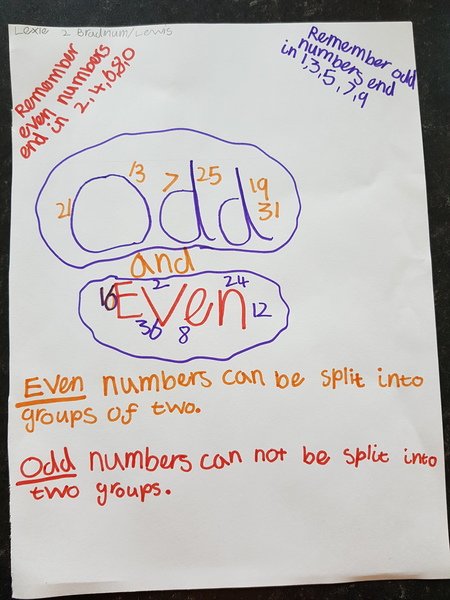 Lexie 2 Bradnum/Lewis
Remember
even numbers
end in 2,4,6,8,0
Remember odd
numbers end
in 1,3,5,7,9
13 7 25 19
21 Odd 31
and
16 Even 2 24
36 8 12
Even numbers can be split into
groups of two.
Odd numbers can not be split into
two groups.